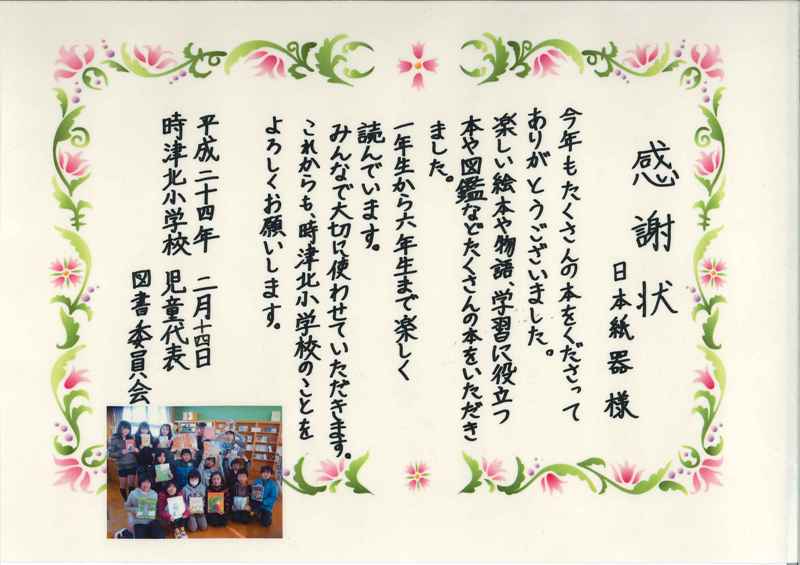 感謝状
日本紙器 様
今年もたくさんの本をくださって
ありがとうございました。
楽しい絵本や物語、学習に役立つ
本や図鑑などたくさんの本をいただき
ました。
一年生から六年生まで楽しく
読んでいます。
みんなで大切に使わせていただきます。
これからも、時津北小学校のことを
よろしくお願いします。
平成二十四年 二月十四日
時津北小学校 児童代表
図書委員会